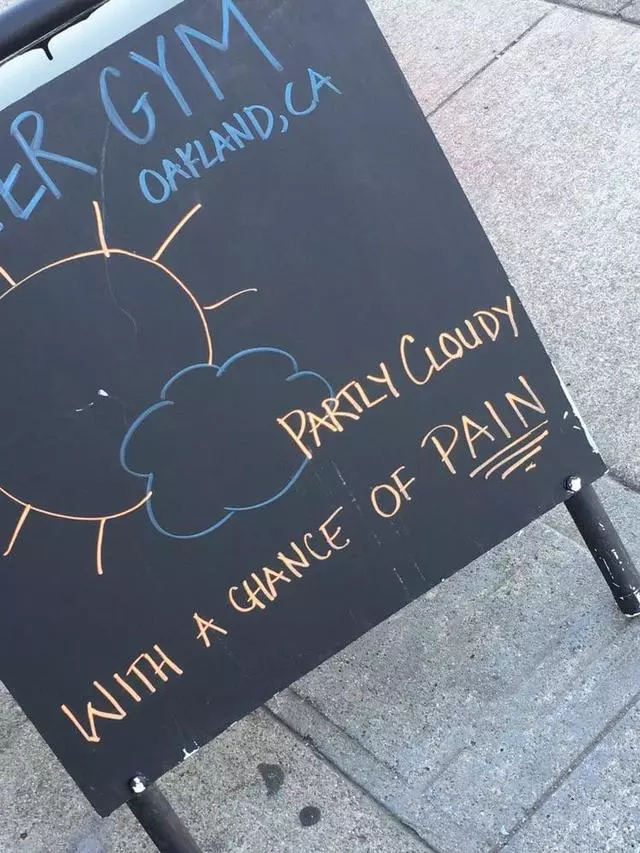 GYM
OAKLAND, CA
PARTLY CLOUDY
WITH A CHANCE OF PAIN